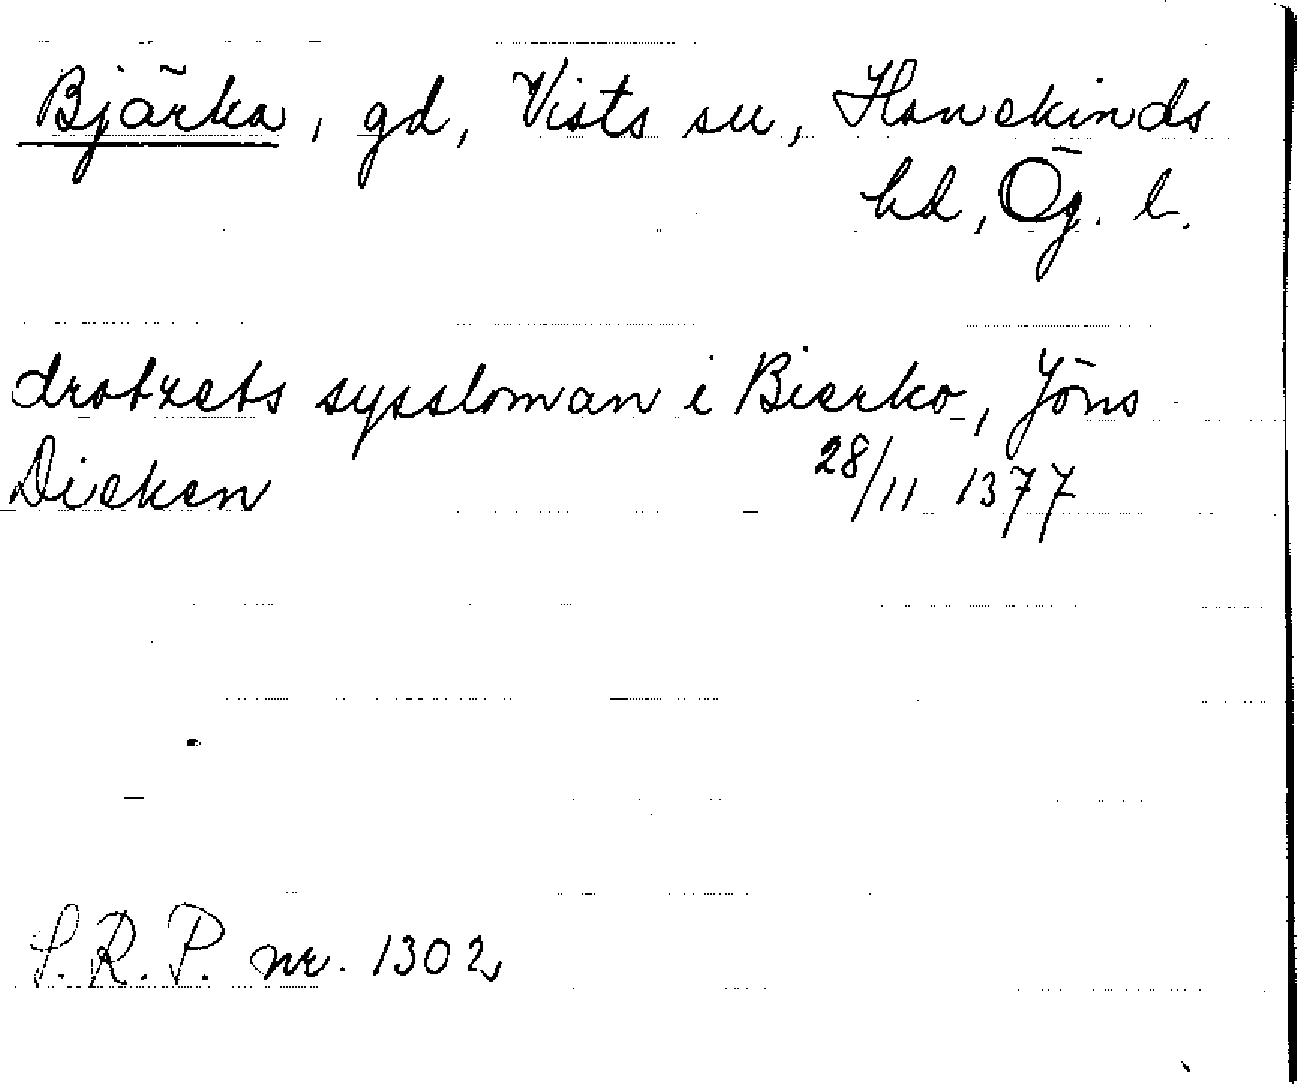 Bjärka, gd, Vists sn, Hanekinds
hd, Ög. l.
drotzets syssloman i Bierko, Jöns
Dieken 28/11 1377
S.R.P. nr. 1302